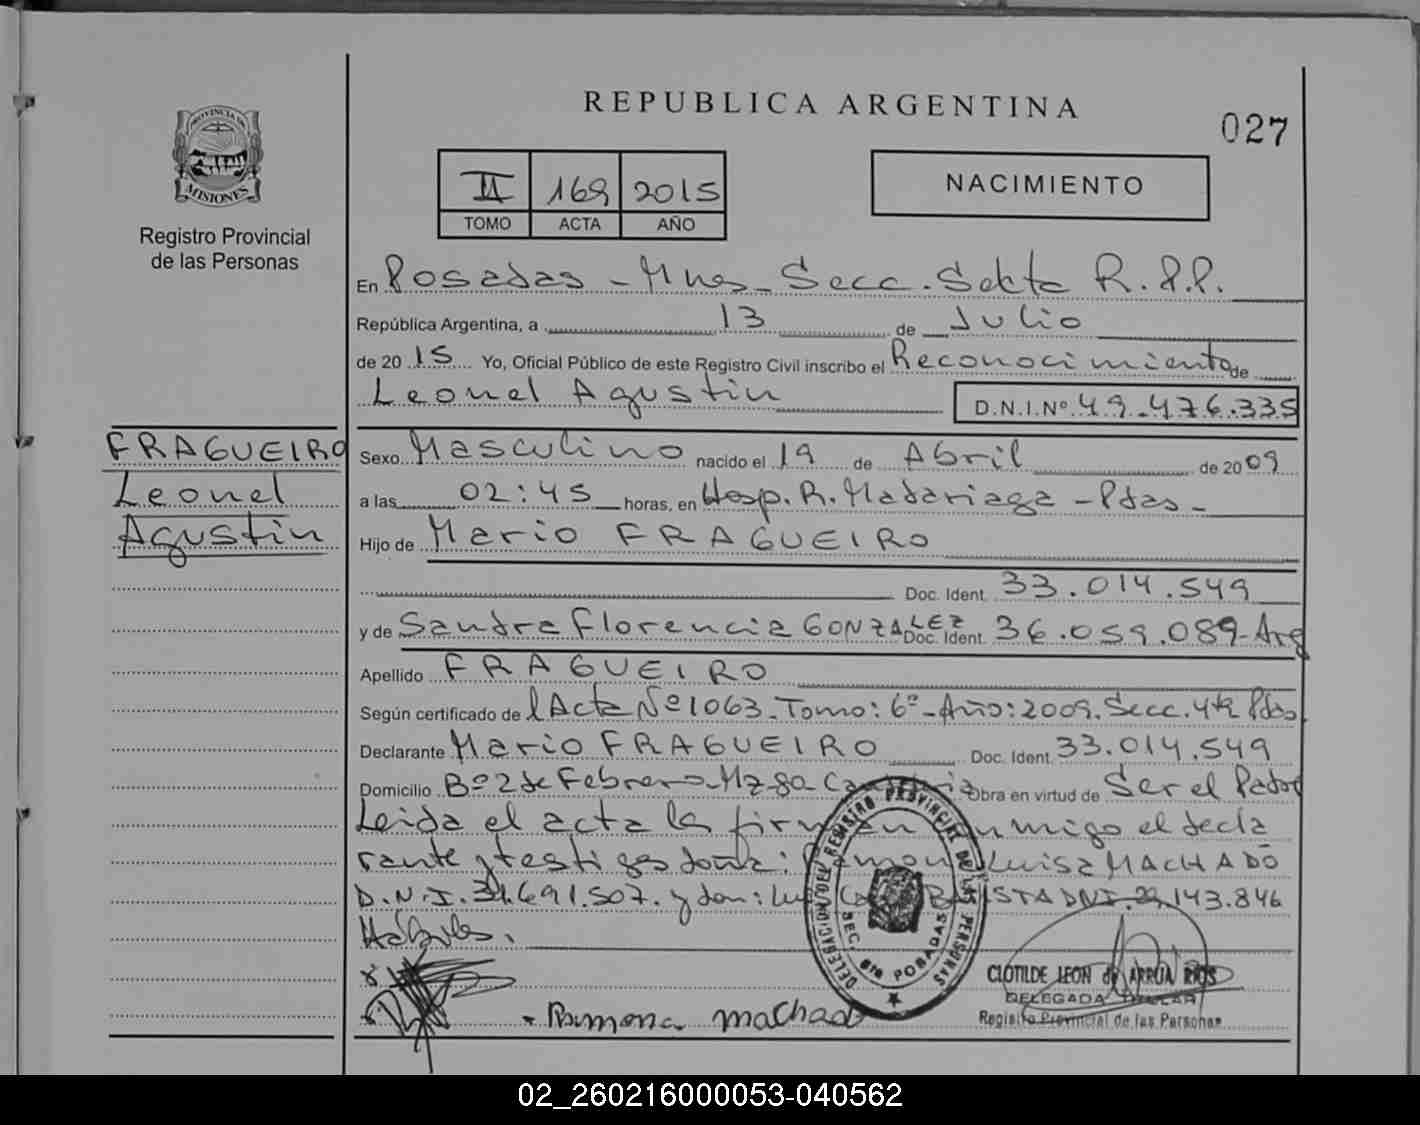 REPUBLICA ARGENTINA
027
PROVINCIA DE
MISIONES
Registro Provincial
de las Personas
II 169 2015
TOMO ACTA AÑO
NACIMIENTO
En Posadas - Mnes - Secc. Sexta R.P.P.
República Argentina, a 13 de Julio
de 2015 Yo, Oficial Público de este Registro Civil inscribo el Reconocimiento de
Leonel Agustin D.N.I.Nº. 49.476.335
FRAGUEIRO
Leonel
Agustin
Sexo Masculino nacido el 19 de Abril de 2009
a las 02:45 horas, en Hosp. R. Madariaga - Pdas -
Hijo de Mario FRAGUEIRO
Doc. Ident. 33.014.549
y de Sandra Florencia GONZALEZ Doc. Ident. 36.059.089-Arg
Apellido FRAGUEIRO
Según certificado de l Acta Nº 1063. Tomo: 6º - Año: 2009. Secc. 4ta Pdas
Declarante Mario FRAGUEIRO Doc. Ident. 33.014.549
Domicilio Bº 2 de Febrero - Mz 80 Obra en virtud de Ser el Padre
Leida el acta la firman conmigo el decla
rante y testigos doña: Ramona Luisa MACHADO
D.N.I. 31.691.507. y don: BAUTISTA DNI. 29.143.846
Habiles.
DELEGACION DEL REGISTRO PROVINCIAL DE LAS PERSONAS
SEC. 6ta POSADAS
CLOTILDE LEON de ARRUA RIOS
DELEGADA TITULAR
Registro Provincial de las Personas
Ramona Machado
02_260216000053-040562